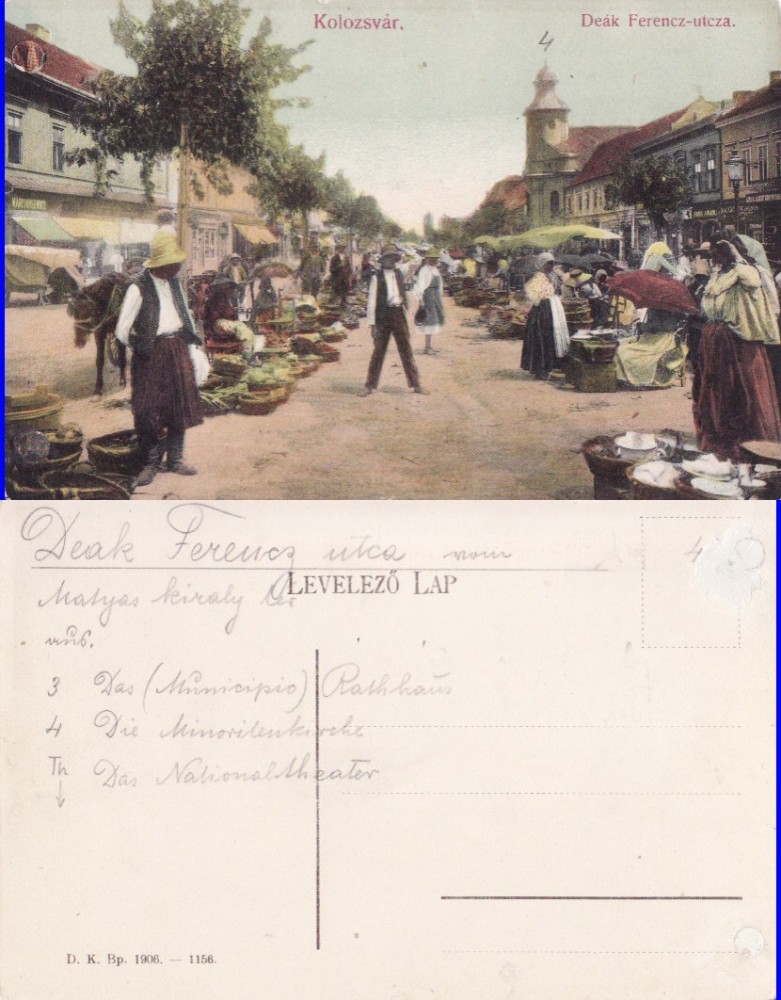 Kolozsvár.
Deák Ferencz-utcza.
4
Deak Ferencz utca vom
4
LEVELEZŐ LAP
Matyas kiraly ter
aus.
3 Das (Municipio) Rathhaus
4 Die Minoritenkirche
Th Das Nationaltheater
D. K. Bp. 1906. — 1156.